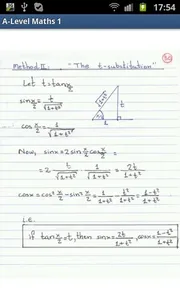 17:54
A-Level Maths 1
Method II: "The t-substitution"
Let t=tan x/2
sin x/2 = t/√(1+t²)
√(1+t²)
t
x/2
1
cos x/2 = 1/√(1+t²)
Now, sinx = 2sin x/2 cos x/2 =
= 2 · t/√(1+t²) · 1/√(1+t²) = 2t/(1+t²)
cosx = cos² x/2 - sin² x/2 = 1/(1+t²) - t²/(1+t²) = (1-t²)/(1+t²)
i.e.
if tan x/2 = t, then sinx = 2t/(1+t²), cosx = (1-t²)/(1+t²)